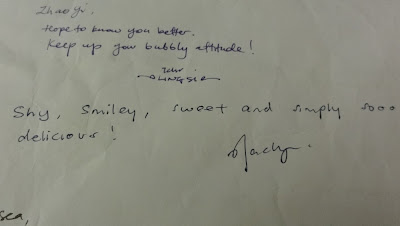 Zhao Yi.
Hope to know you better.
Keep up your bubbly attitude!
Shy, smiley, sweet and simply sooo
delicious!
sea,